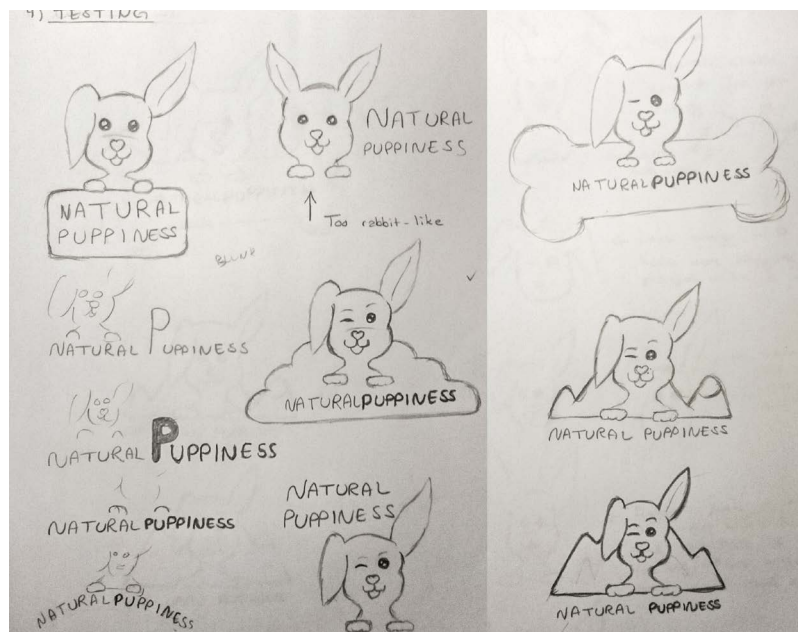 4) TESTING
NATURAL
PUPPINESS
NATURAL
PUPPINESS
Too rabbit-like
NATURAL PUPPINESS
NATURALPUPPINESS
NATURAL PUPPINESS
NATURALPUPPINESS
NATURALPUPPINESS
NATURAL
PUPPINESS
NATURALPUPPINESS
NATURAL PUPPINESS
NATURAL PUPPINESS